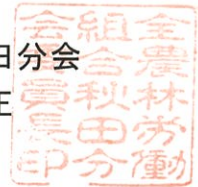 田分会
全農林労働
組合秋田分
会委員長印